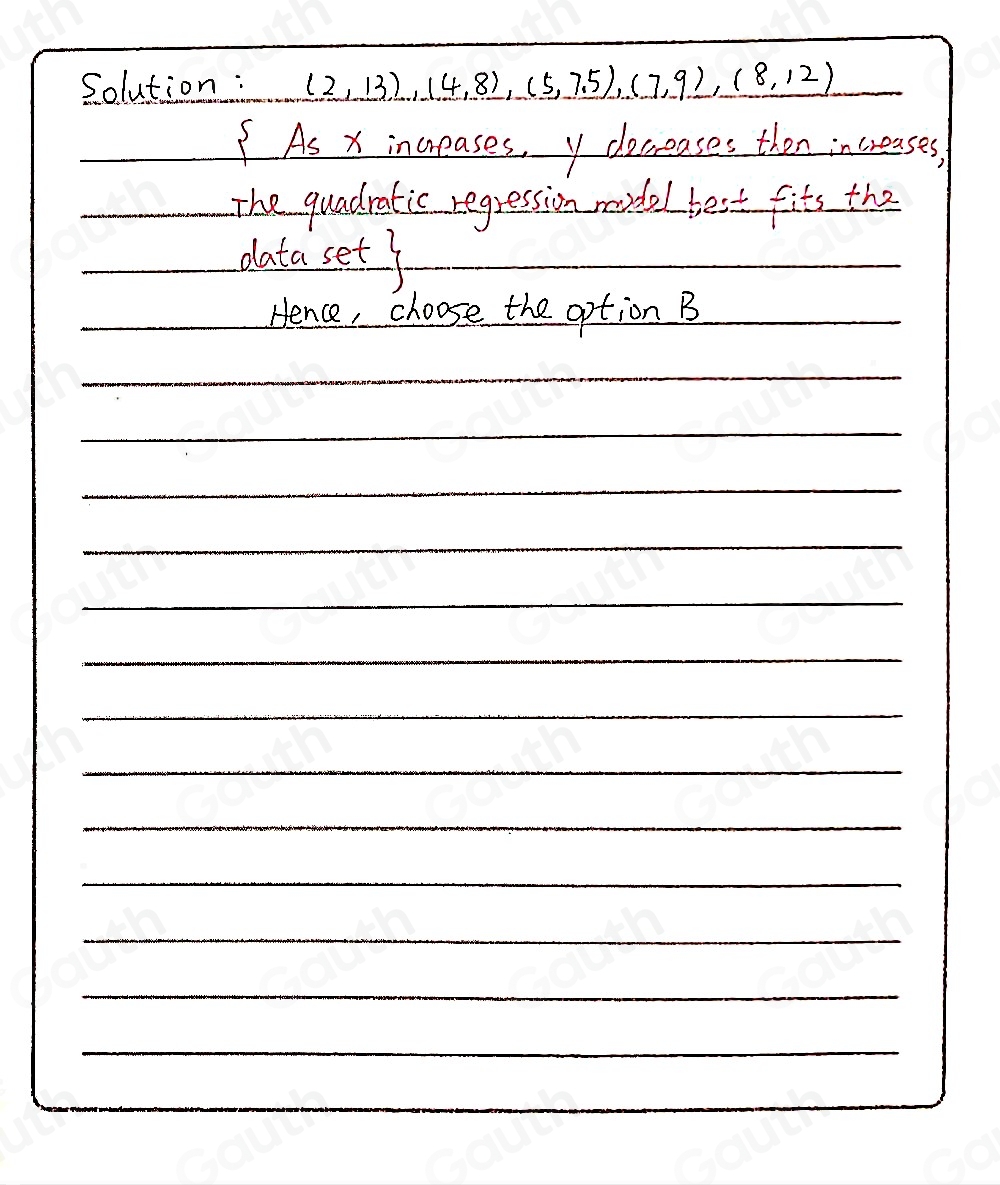 Solution: (2,13), (4,8), (5,7.5), (7,9), (8,12)
{ As x increases, y decreases then increases,
The quadratic regression model best fits the
data set }
Hence, choose the option B